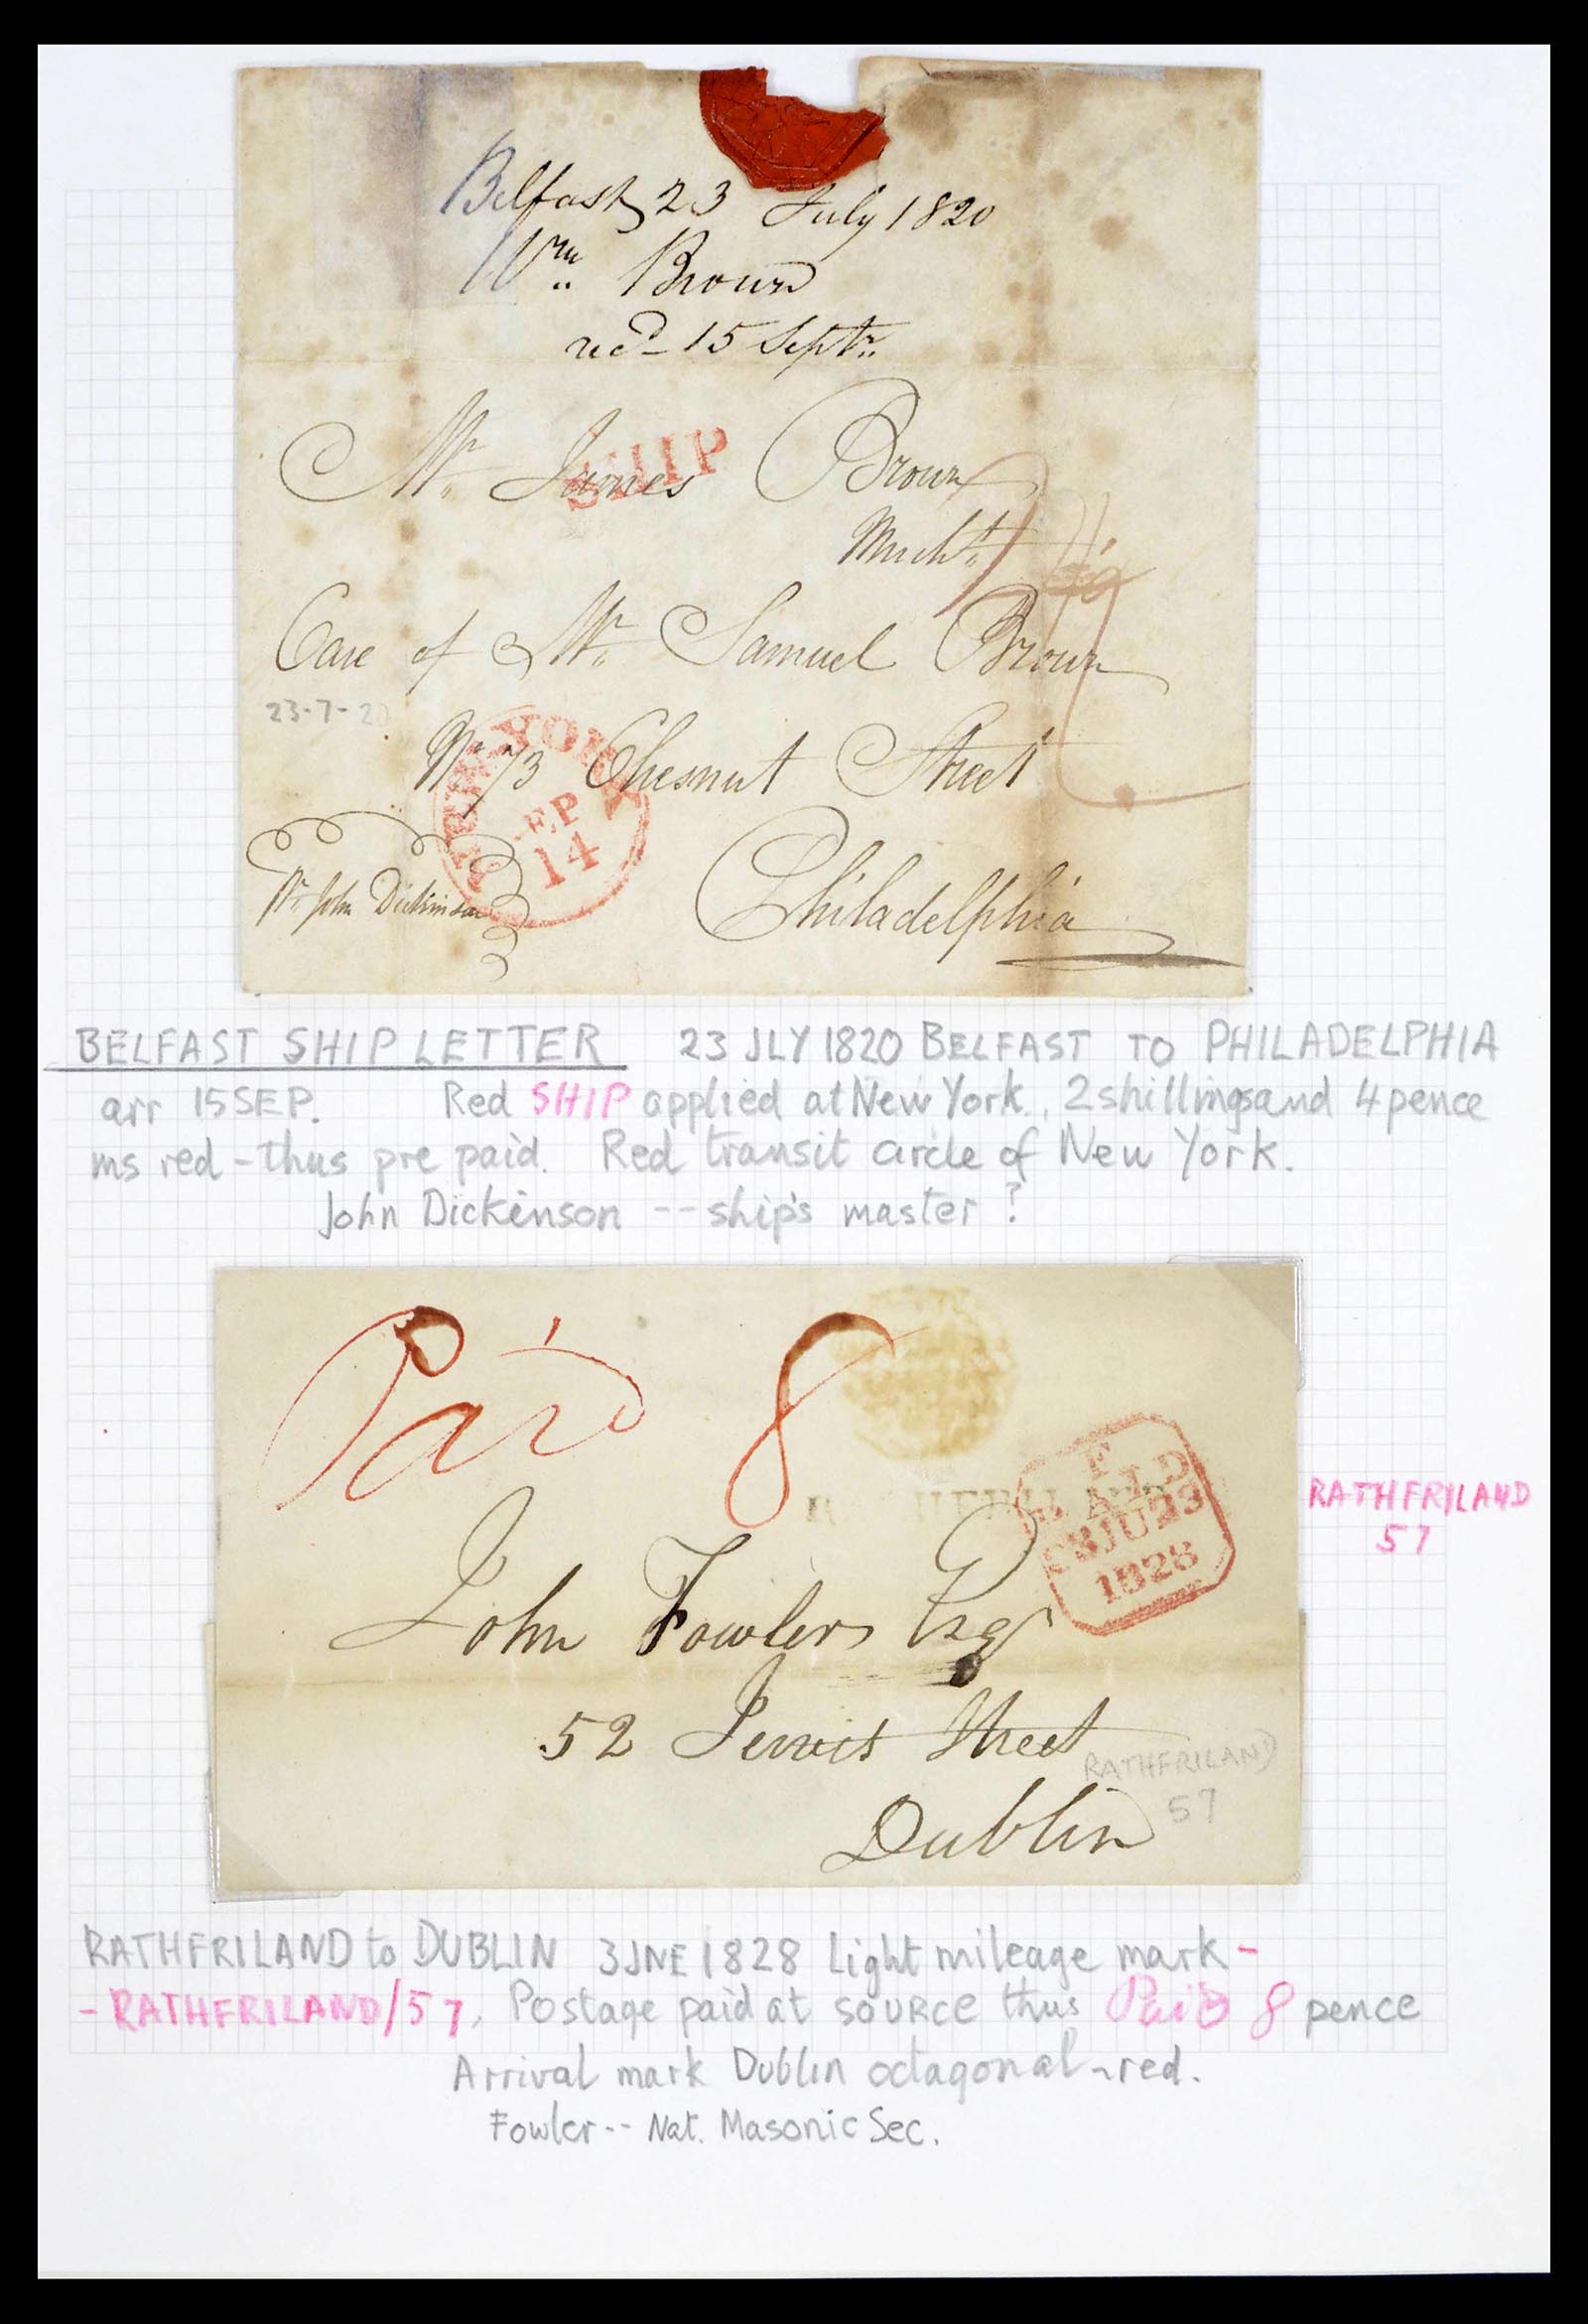 Belfast 23 July 1820
Wm Brown
recd 15 Septr
SHIP
Mr James Brown
Mercht
Care of Mr Samuel Brown
23-7-20
No 73 Chesnut Street
NEW YORK
SEP
14
Pr John Dickinson
Philadelphia
BELFAST SHIP LETTER 23 JLY 1820 BELFAST TO PHILADELPHIA
arr 15 SEP. Red SHIP applied at New York, 2 shillings and 4 pence
ms red - thus pre paid. Red transit circle of New York.
John Dickenson -- ship's master?
Paid 8
F
PAID
3 JU 3
1828
RATHFRILAND
57
John Fowler Esqr
52 Jervis Street
RATHFRILAND
57
Dublin
RATHFRILAND to DUBLIN 3 JNE 1828 Light mileage mark -
- RATHFRILAND/57, Postage paid at source thus Paid 8 pence
Arrival mark Dublin octagonal - red.
Fowler -- Nat. Masonic Sec.